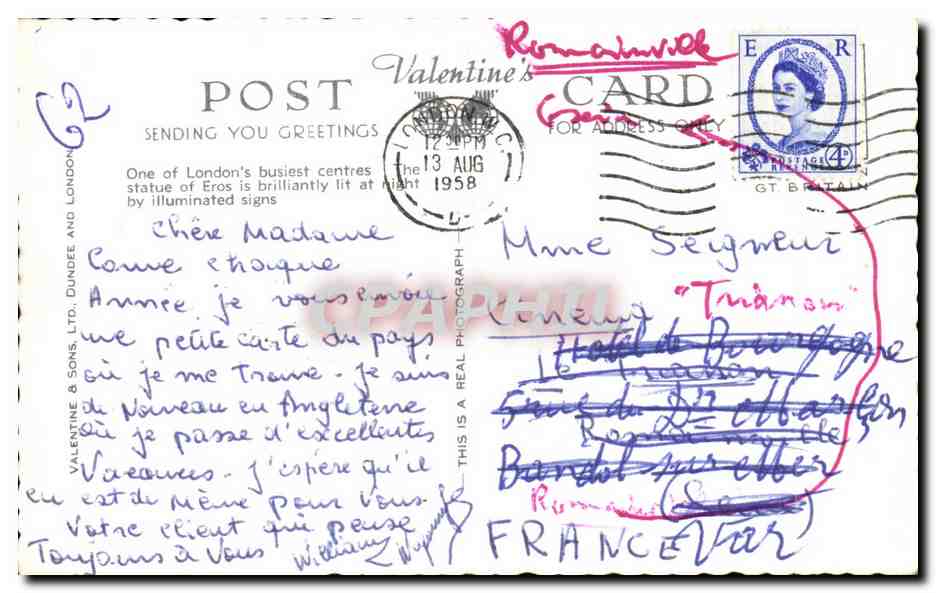 Romainville
Valentine's
POST CARD
SENDING YOU GREETINGS
FOR ADDRESS ONLY
E R
POSTAGE
REVENUE
4D
GT. BRITAIN
62
LONDON W.C.
12 30 PM
13 AUG
1958
One of London's busiest centres The
statue of Eros is brilliantly lit at night
by illuminated signs
VALENTINE & SONS, LTD., DUNDEE AND LONDON
THIS IS A REAL PHOTOGRAPH
CPARHII
Chère Madame
Come chaque
Année, je vous envoie
une petite carte du pays
où je me trouve. Je suis
de Nouveau en Angleterre
où je passe d'excellentes
Vacances. J'espère qu'il
en est de même pour vous. Je
Votre client qui pense
Toujours à Vous
William
Mme Seigneur
"Trianon"
Cinéma
Hotel de Bourgogne
Le Trianon
Romainville
Bandol sur Mer
Romainville
(Seine)
FRANCE (Var)